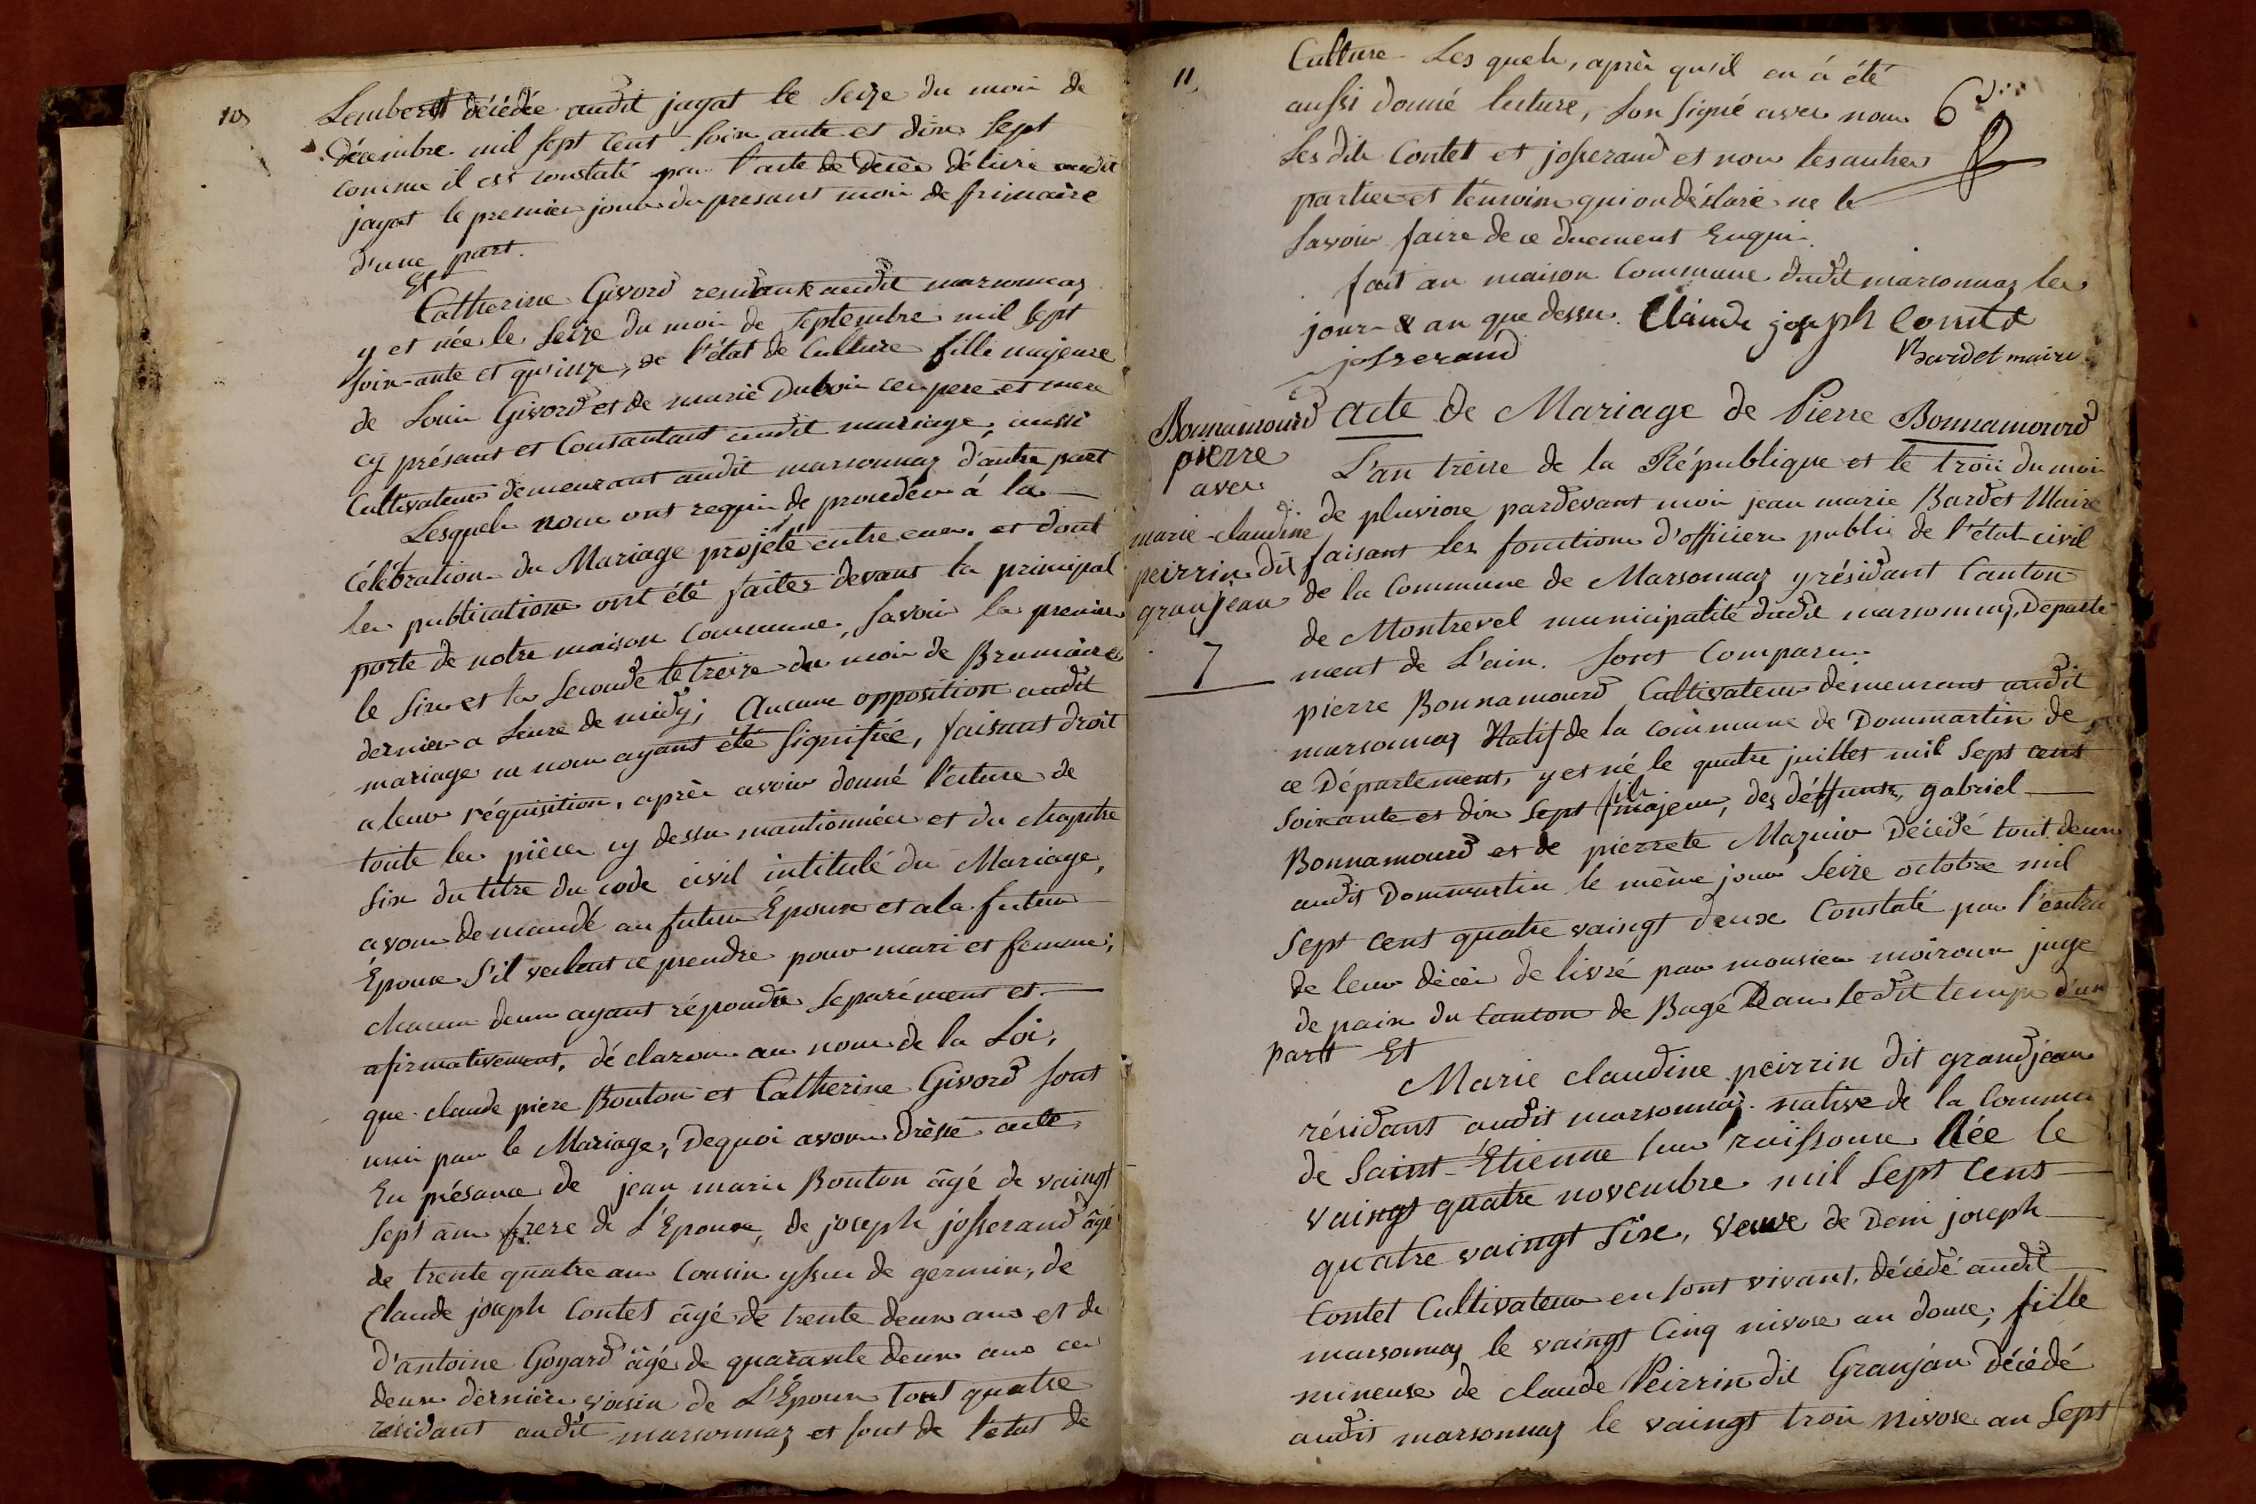 10
Lembert décédée audit jayat le seize du mois de
décembre mil sept cent soixante et dix sept
comme il est constaté par l'acte de décès délivré audit
jayat le premier jour du présant mois de frimaire
d'une part.
Et
Catherine Givord residante audit marsonnaz
y et née le seize du mois de septembre mil sept
soixante et quinze, de l'état de Culture fille majeure
de Louis Givord et de marie Duboin ces pere et mere
cy présant et Consantant audit mariage, aussi
Cultivateurs demeurant audit marsonnaz d'autre part
Lesquels nous ont requis de proceder á la
Célébration du Mariage projété entre eux. et dont
les publications ont été faites devant la principal
porte de notre maison Commune, savoir la premier
le six et la seconde le treize du mois de Brumaire
dernier a heure de midy; Aucune opposition audit
mariage ne nous ayant été signifiée, faisant droit
a leur réquisition, après avoir donné lecture de
toute les pièces cy dessus mantionnées et du chapitre
six du titre du code civil intitulé du Mariage,
avons demandé au futur Épour et a la future
Épouse s'il veulent ce prendre pour mari et femme;
chacun deux ayant répondu séparément et
afirmativement, déclarons au nom de la Loi,
que claude piere Bouton et Catherine Givord sont
unis par le Mariage; Dequoi avons drèssé acte
En présance de jean marie Bouton âgé de vaingt
sept ans frere de L'Epoux, de joseph josserand âgé
de trente quatre ans Cousin yssue de germin, de
Claude joseph Contet âgé de trente deux ans et de
d'antoine Goyard âgé de quarante deux ans ces
deux derniers voisin de L'Epoux tout quatre
résidant audit marsonnaz et sont de l'etat de
11
Culture Les quels, après qu'il en á été
aussi donné lecture, son signé avec nous
Les dits Contet et josserand et non les autres
parties et temoins qui on déclaré ne le
savoir faire de ce duement Enqui.
fait an maison Commune dudit marsonnaz les
jour & an que dessus. Claude joseph Contet
josserand
Bardet maire
Bonnamourd
pierre
avec
marie-claudine
peirrin dit
granjean
7
acte de Mariage de Pierre Bonnamourd
L'an treize de la République et le trois du mois
de pluviose pardevant moi jean marie Bardet Maire
faisant les fonctions d'officier public de l'état civil
de la Commune de Marsonnaz y résidant Canton
de Montrevel municipalité dudit marsonnaz, Departe-
ment de L'ain. sont Comparu
pierre Bonnamourd Cultivateur demeurant audit
marsonnaz Natif de la commune de Dommartin de
ce Département, y et né le quatre juillet mil sept cent
soixante et dix sept fils majeur, des déffunts, gabriel
Bonnamourd et de pierrete Mazuir Décédé tout deux
audit Dommartin le même jour seize octobre mil
sept cent quatre vaingt deux Constaté par l'extrai
de leur décès delivré par monsieur moiroux juge
de paix du Canton de Bagé Dans ledit temps d'un
part Et
Marie claudine peirrin dit grandjean
résidant audit marsonnaz. native de la Commu
de Saint-Étienne sur raissouse Née le
vaingt quatre novembre mil sept cent
quatre vaingt Six, veuve de Deni joseph
Contet Cultivateur en sont vivant, décédé audit
marsonnaz le vaingt Cinq nivose an douze, fille
mineuse de claude Peirrin dit Granjan Décédé
audit marsonnaz le vaingt trois Nivose an Sept